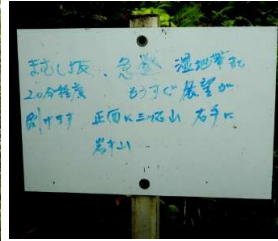 まむし坂、急登 湿地帯記
20分程度 もうすぐ展望が
開けます 正面に三ツ石山 右手に
岩手山